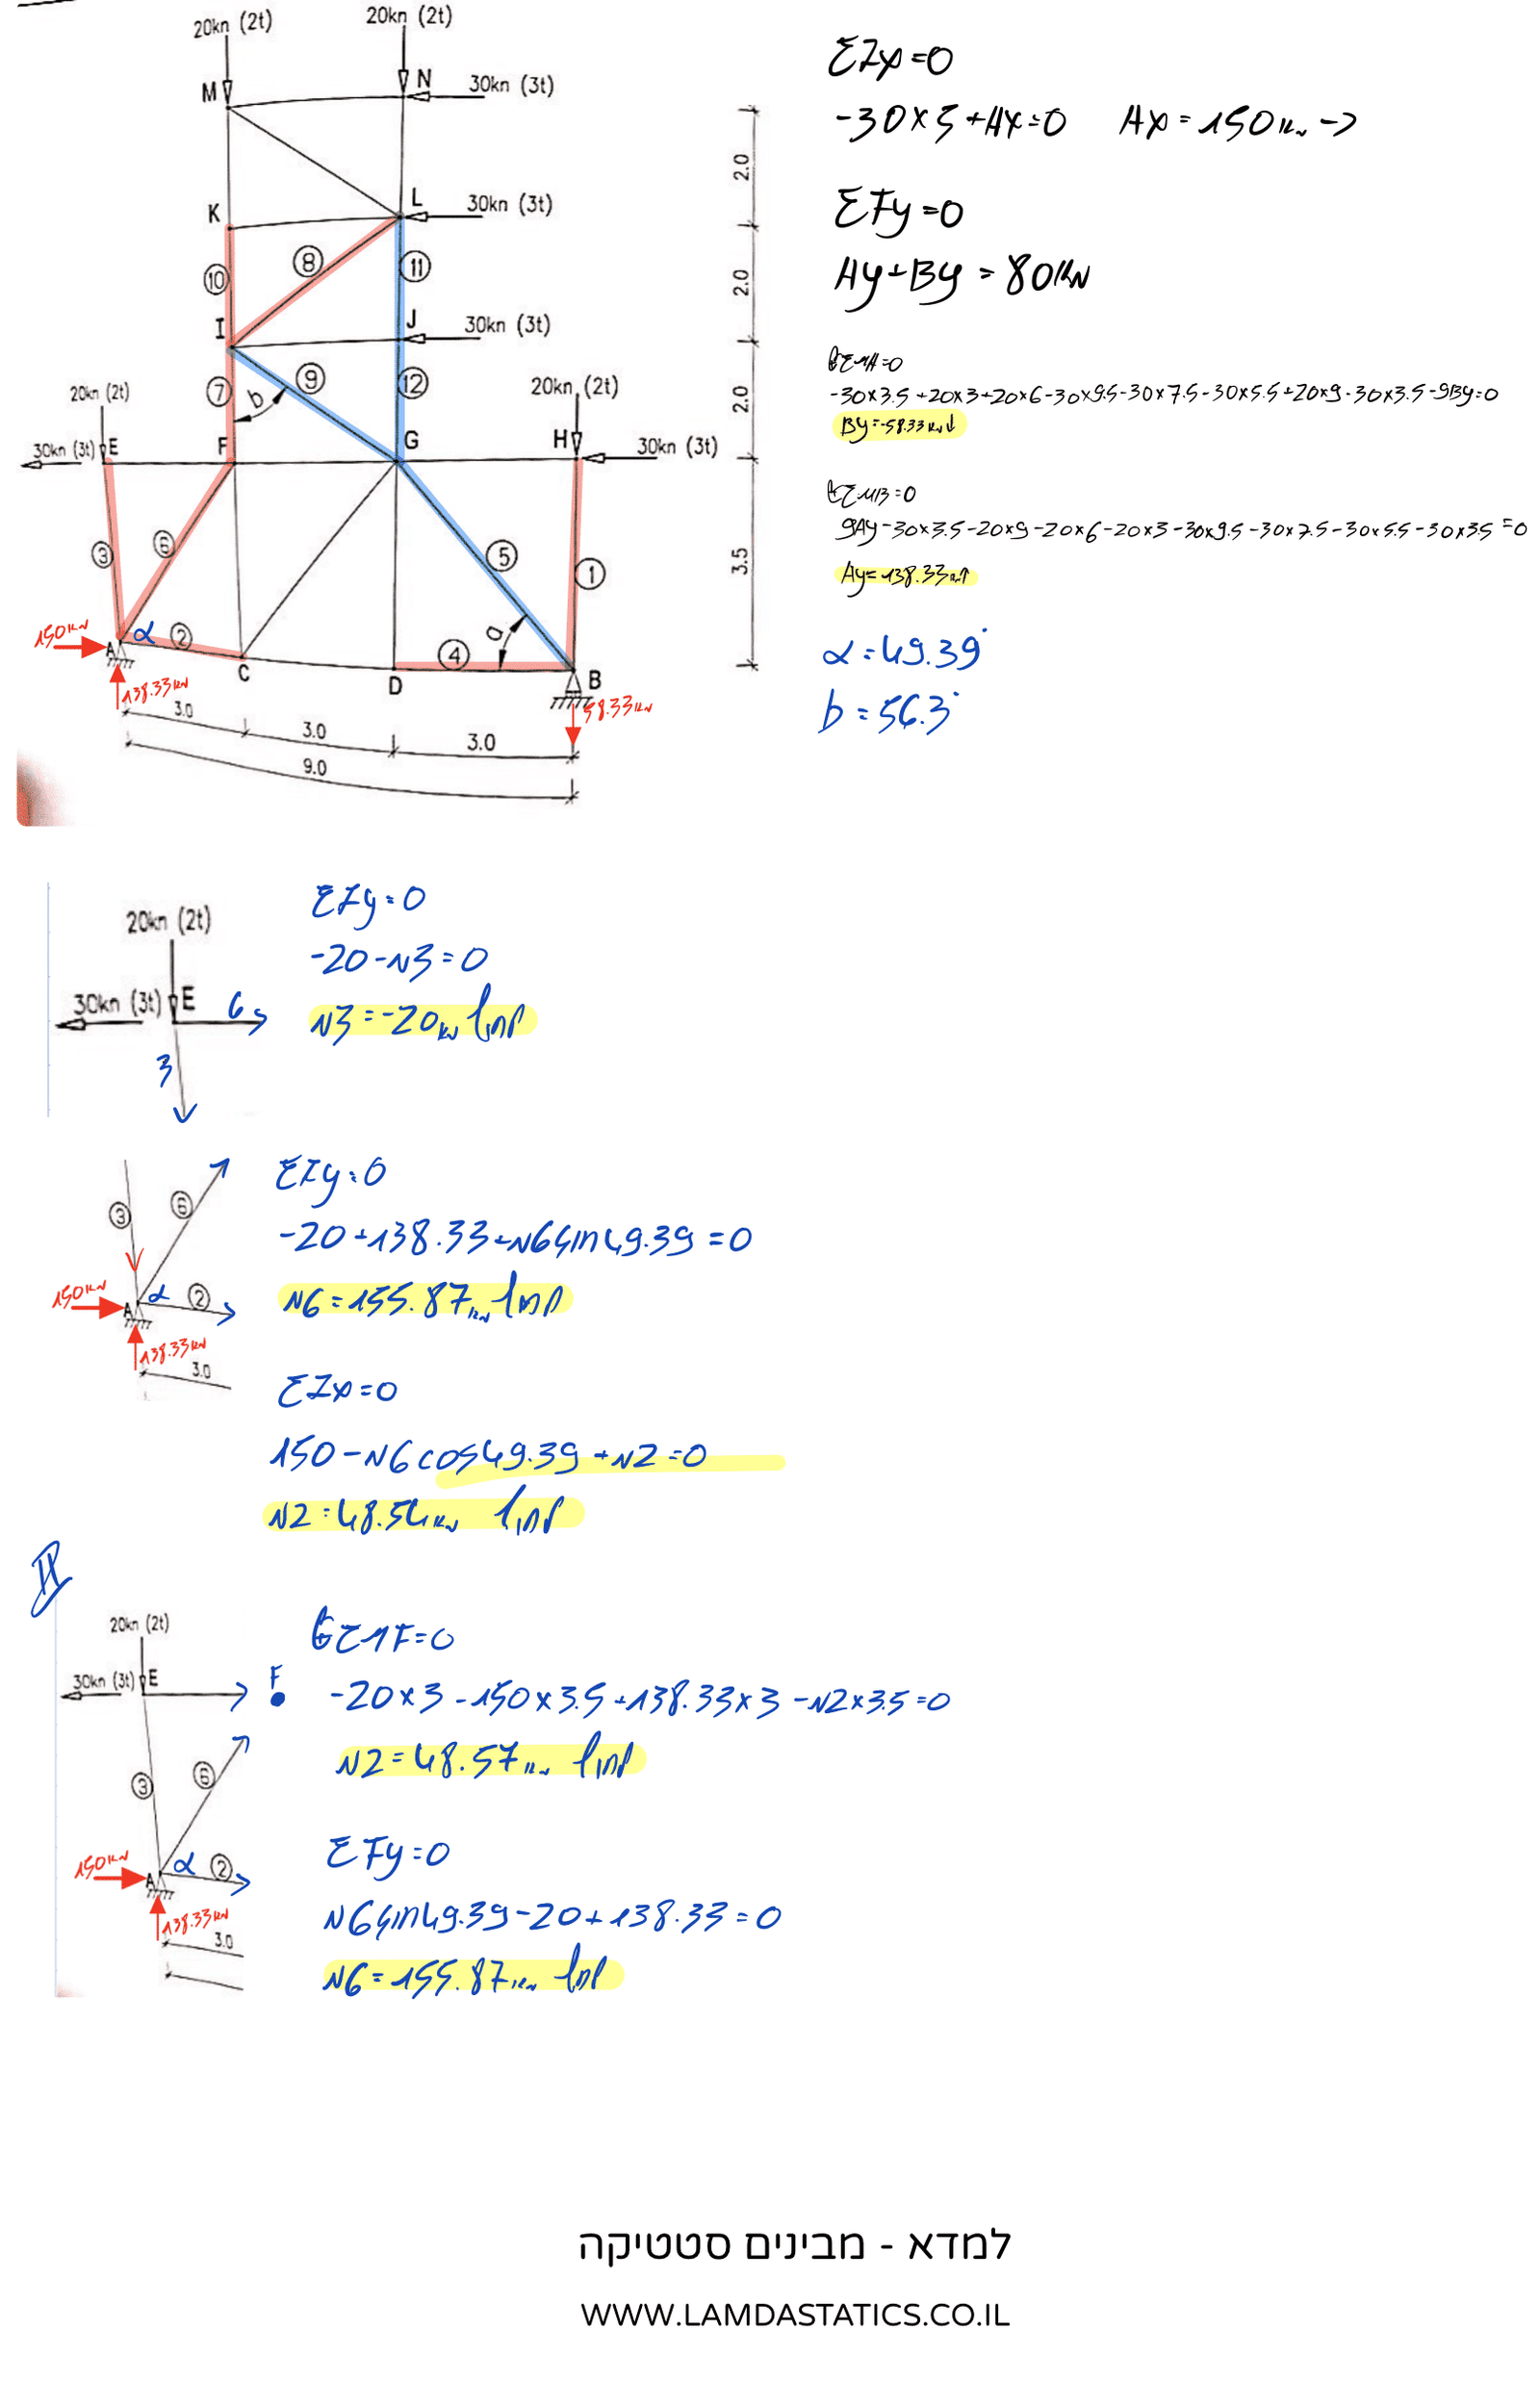 20kn (2t)
20kn (2t)
M
N
30kn (3t)
K
L
30kn (3t)
⑩
⑧
⑪
I
J
30kn (3t)
⑦
⑨
⑫
b
20kn (2t)
20kn (2t)
30kn (3t)
E
F
G
H
30kn (3t)
③
⑥
⑤
①
150kN
A
α
②
C
④
a
D
B
138.33kN
58.33kN
3.0
3.0
3.0
9.0
2.0
2.0
2.0
3.5
ΣFx=0
-30×5+Ax=0 Ax=150kN→
ΣFy=0
Ay+By=80kN
ΣMA=0
-30×3.5+20×3+20×6-30×9.5-30×7.5-30×5.5+20×9-30×3.5-9By=0
By=-58.33kN↓
ΣMB=0
9Ay-30×3.5-20×9-20×6-20×3-30×9.5-30×7.5-30×5.5-30×3.5=0
Ay=138.33kN↑
α=49.39°
b=56.3°
20kn (2t)
30kn (3t)
E
6
3
ΣFy=0
-20-N3=0
N3=-20kN
③
⑥
150kN
A
α
②
138.33kN
3.0
ΣFy=0
-20+138.33+N6sin49.39=0
N6=155.87kN
ΣFx=0
150-N6cos49.39+N2=0
N2=48.54kN
II
20kn (2t)
30kn (3t)
E
F
③
⑥
150kN
A
α
②
138.33kN
3.0
ΣMF=0
-20×3-150×3.5+138.33×3-N2×3.5=0
N2=48.57kN
ΣFy=0
N6sin49.39-20+138.33=0
N6=155.87kN
למדא - מבינים סטטיקה
WWW.LAMDASTATICS.CO.IL